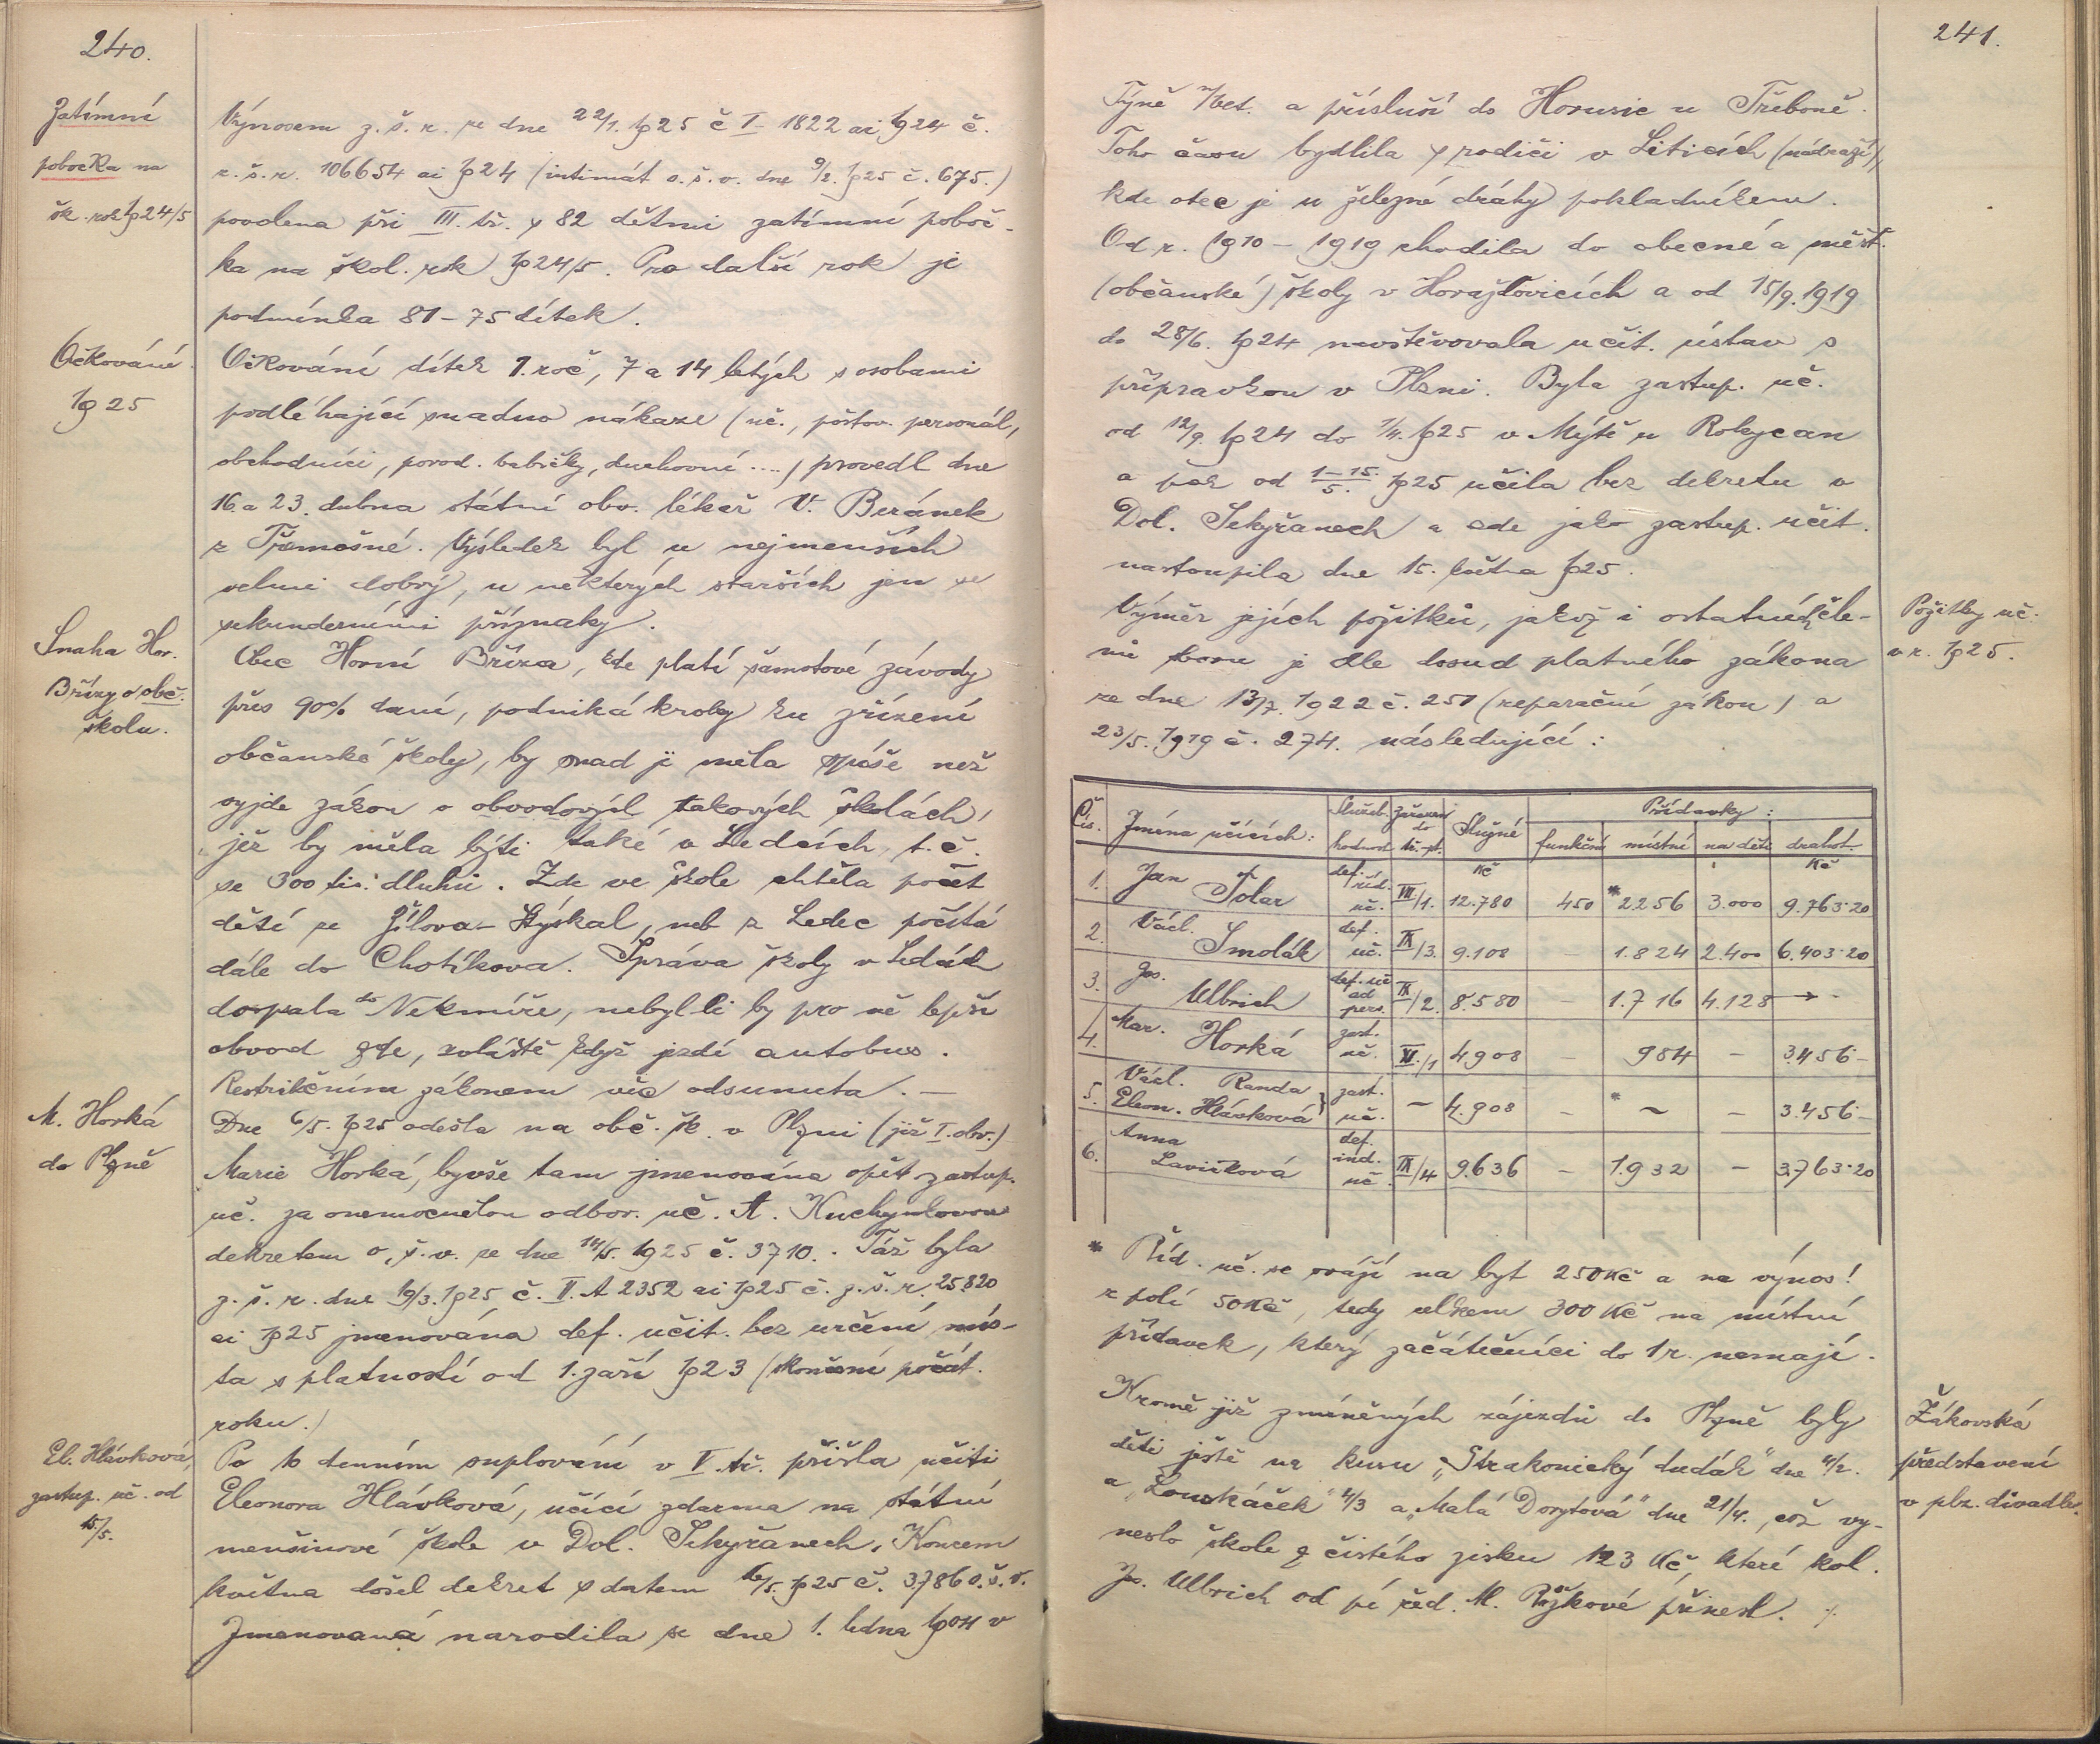 240.
Zatímní
pobočka na
šk. rok 1924/5
Výnosem z. š. r. ze dne 22/1. 1925 č I - 1822 ai 1924 č.
z. š. r. 106654 ai 1924 (intimát o. š. v. dne 9/2. 1925 č. 675.)
povolena při III. tř. s 82 dětmi zatímní poboč-
ka na škol. rok 1924/5. Pro další rok je
podmínka 81 - 75 dítek.
Očkování
1925
Očkování dítek 1. roč, 7 a 14 letých s osobami
podléhající snadno nákaze (uč., poštov. personál,
obchodníci, porod. babičky, duchovní ....) provedl dne
16. a 23. dubna státní obv. lékař V. Beránek
z Třemošné. Výsledek byl u nejmenších
velmi dobrý, u některých starších jen se
sekunderními příznaky.
Snaha Hor.
Břízy o obč.
školu.
Obec Horní Bříza, kde platí šamotové závody
přes 90% daní, podniká kroky ku zřízení
občanské školy, by snad ji měla spíše než
vyjde zákon o obvodových takových školách,
jež by měla býti také v Ledcích t. č.
se 300 tis. dluhů. Zde ve škole chtěla počet
dětí ze Žilova - Stýskal, neb z Ledec počítá
dále do Chotíkova. Správa školy v Ledcích
dopsala do Nekmíře, nebyl-li by pro ně lepší
obvod zde, zvláště když jezdí autobus.
Restrikčním zákonem věc odsunuta. —
M. Horká
do Plzně
Dne 6/5. 1925 odešla na obč. šk. v Plzni (již I. obv.)
Marie Horká, byvše tam jmenována opět zastup.
uč. za onemocnělou odbor. uč. A. Kuchynkovou
dekretem o. š. v. ze dne 14/5. 1925 č. 3710. Táž byla
z. š. r. dne 19/3. 1925 č. II. A 2352 ai 1925 č. z. š. r. 25.820
ai 1925 jmenována def. učit. bez určení mís-
ta s platností od 1. září 1923 (skončení počát.
roku.)
El. Hlávková,
zastup. uč. od
15/5.
Po 10 denním suplování v V. tř. přišla učiti
Eleonora Hlávková, učící zdarma na státní
menšinové škole v Dol. Sekyřanech. Koncem
května došel dekret s datem 16/5. 1925 č. 3786 o. š. v.
Jmenovaná narodila se dne 1. ledna 1904 v
241.
Týně n/Vlt. a přísluší do Horusic u Třeboně.
Toho času bydlila s rodiči v Liticích (nádraží),
kde otec je u železné dráhy pokladníkem.
Od r. 1910 - 1919 chodila do obecné a měšť.
(občanské) školy v Horažďovicích a od 15/9. 1919
do 28/6. 1924 navštěvovala učit. ústav s
přípravkou v Plzni. Byla zastup. uč.
od 12/9. 1924 do 1/4. 1925 v Mýtě u Rokycan
a pak od 1-15./5. 1925 učila bez dekretu v
Dol. Sekyřanech a zde jako zastup. učit.
nastoupila dne 15. května 1925.
Požitky uč.
v r. 1925.
Výměr jejích požitků, jakož i ostatních čle-
nů sboru je dle dosud platného zákona
ze dne 13/7. 1922 č. 251 (reparační zákon) a
23/5. 1919 č. 274. následující:
Čís. Jména učících: Služeb. hodnost Zařazení do tř. st. Služné Přídavky:
funkční místní na děti drahot.
Kč Kč
1. Jan Tolar def. říd. uč. VII/1. 12.780 450 * 2256 3.000 9.763·20
2. Václ. Smolák def. uč. IX/3. 9.108 — 1.824 2.400 6.403·20
3. Jos. Ulbrich def. uč. ad pers. IX/2. 8.580 — 1.716 4.128 → -
4. Mar. Horká zast. uč. XI./1 4.908 — 984 — 3.456 -
5. Václ. Randa
Eleon. Hlávková } zast. uč. ~ 4.908 — * ~ — 3.456 -
6. Anna Lavičková def. ind. uč. IX/4 9.636 — 1.932 — 3.763·20
* Říd. uč. se sráží na byt 250 Kč a na výnos!
z polí 50 Kč, tedy celkem 300 Kč na místní
přídavek, který začátečníci do 1 r. nemají.
Žákovská
představení
v plz. divadle.
Kromě již zmíněných zájezdů do Plzně byly
děti ještě na kusu „Strakonický dudák" dne 4/2.
a „Louskáček" 4/3 a „Malá Dorytová" dne 21/4., což vy-
neslo škole z čistého zisku 123 Kč, které kol.
Jos. Ulbrich od pí řed. M. Rýžkové přinesl. ⁒